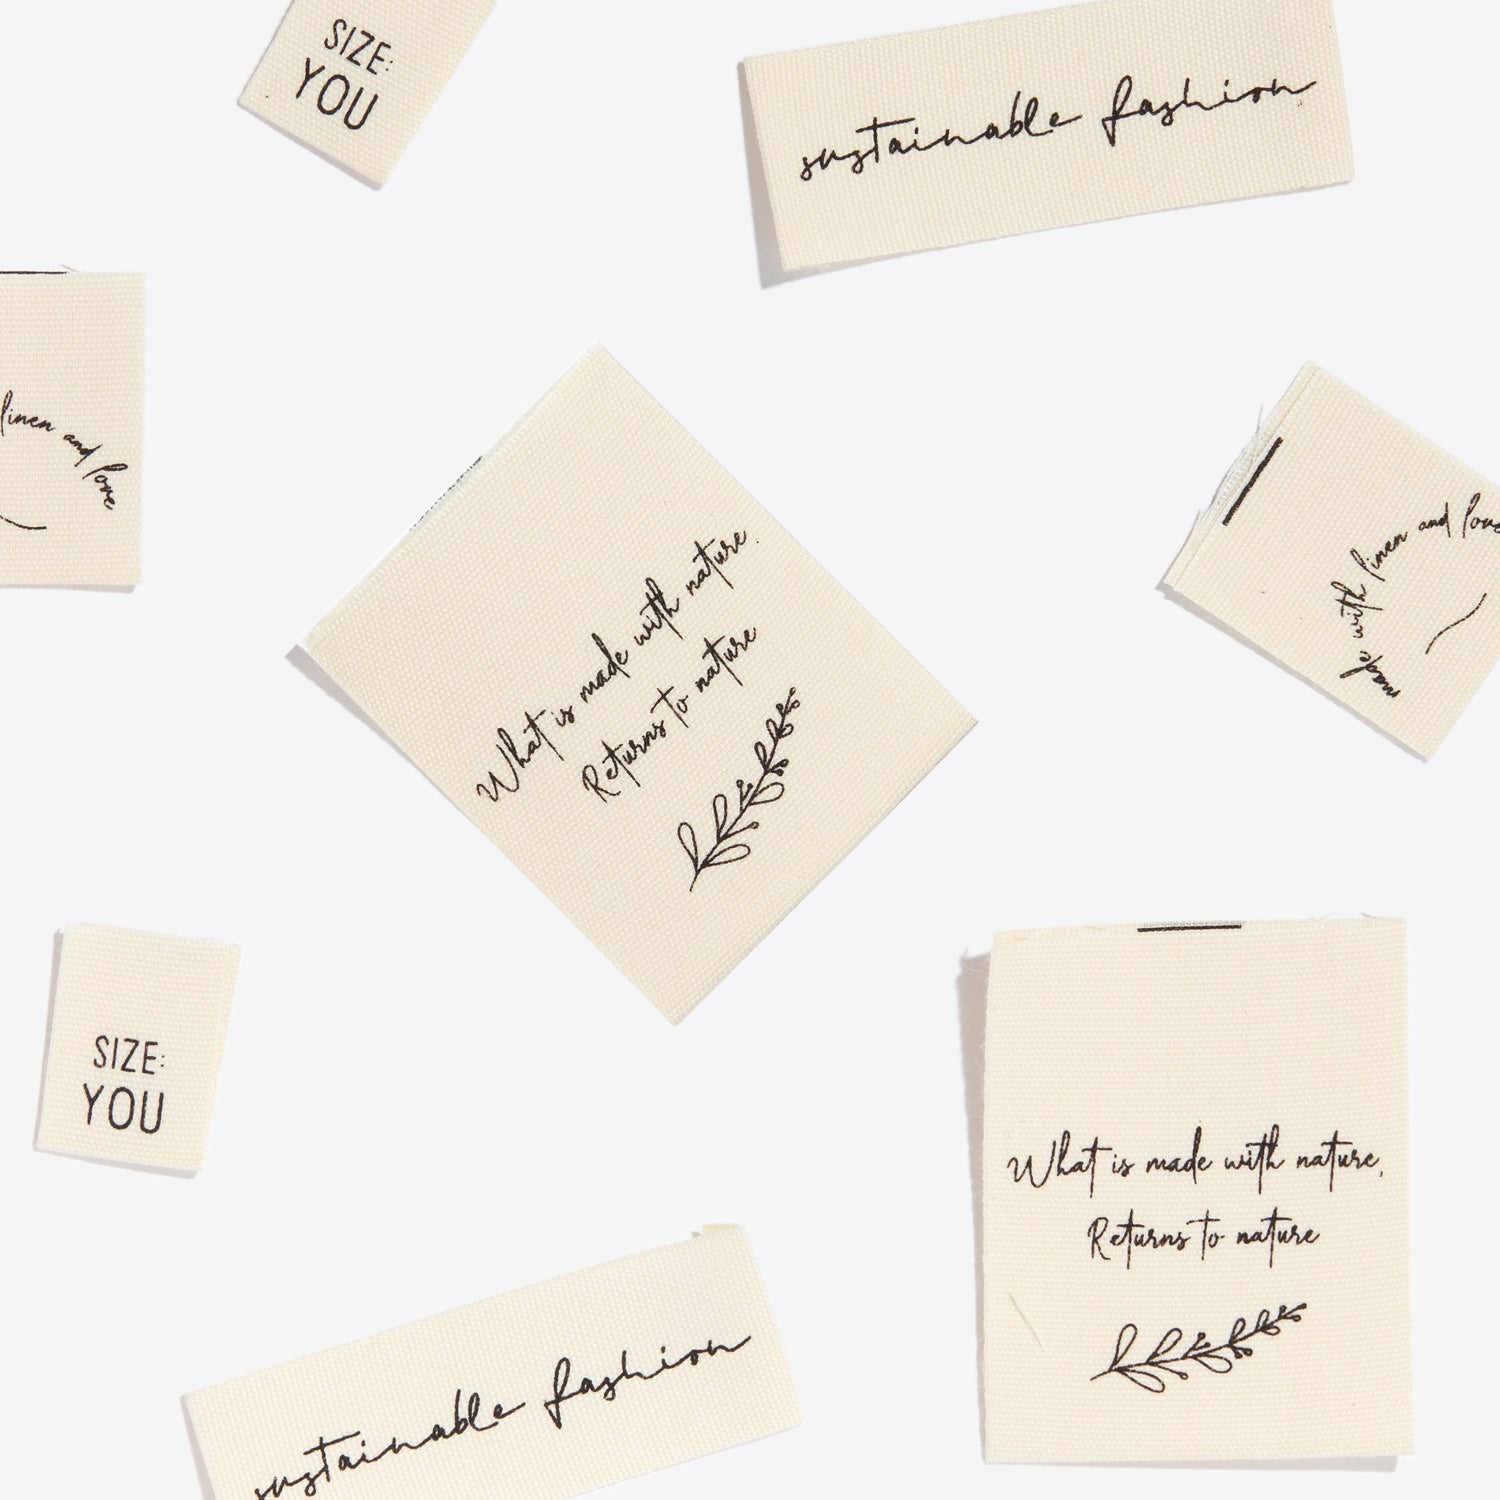 SIZE:
YOU
sustainable fashion
linen and love
What is made with nature.
Returns to nature
made with linen and love
SIZE:
YOU
What is made with nature,
Returns to nature
sustainable fashion